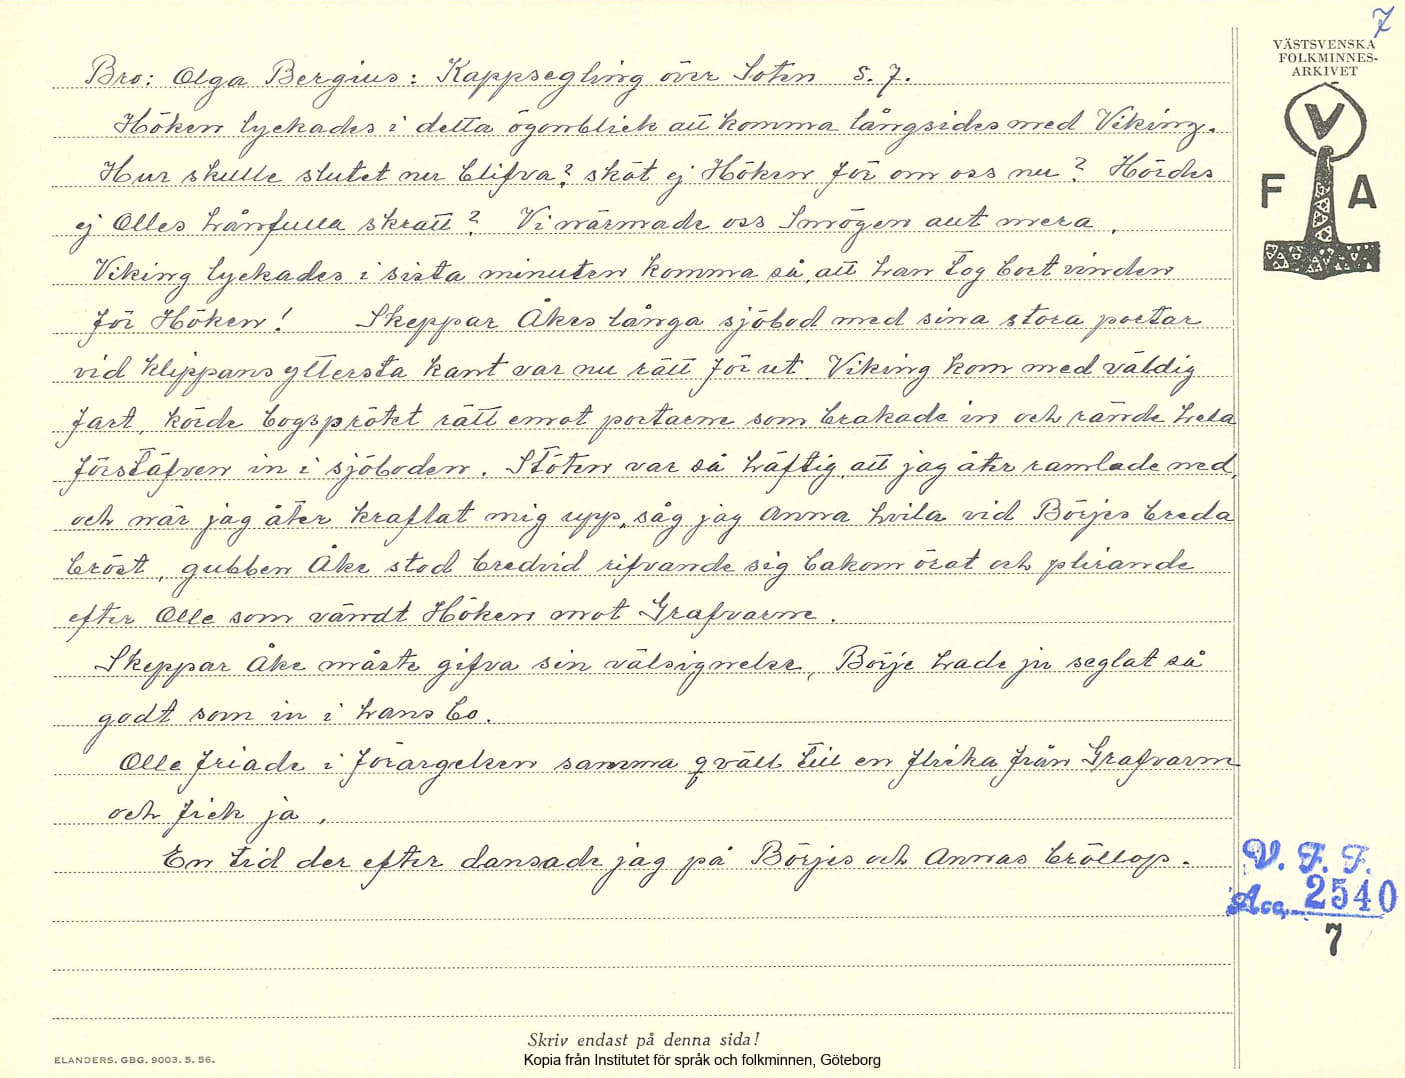 7
VÄSTSVENSKA
FOLKMINNES-
ARKIVET
V
F A
Bro: Olga Bergius: Kappsegling över Soten s. 7.
Höken lyckades i detta ögonblick att komma långsides med Viking.
Hur skulle slutet nu blifva? sköt ej Höken för om oss nu? Hördes
ej Olles hånfulla skratt? Vi närmade oss Smögen allt mera.
Viking lyckades i sista minuten komma så, att han tog bort vinden
för Höken! Skeppar Åkes långa sjöbod med sina stora portar
vid klippans yttersta kant var nu rätt för ut. Viking kom med väldig
fart, körde bogsprötet rätt emot portarne som brakade in och rände hela
förstäfven in i sjöboden. Stöten var så häftig, att jag åter ramlade ned,
och när jag åter kraflat mig upp, såg jag Anna hvila vid Börjes breda
bröst, gubben Åke stod bredvid rifvande sig bakom örat och plirande
efter Olle som vändt Höken mot Grafvarne.
Skeppar Åke måste gifva sin välsignelse, Börje hade ju seglat så
godt som in i hans bo.
Olle friade i förargelsen samma qväll till en flicka från Grafvarne
och fick ja.
En tid der efter dansade jag på Börjes och Annas bröllop.
V. F. F.
Acc. 2540
7
Skriv endast på denna sida!
ELANDERS. GBG. 9003. 5. 56.
Kopia från Institutet för språk och folkminnen, Göteborg